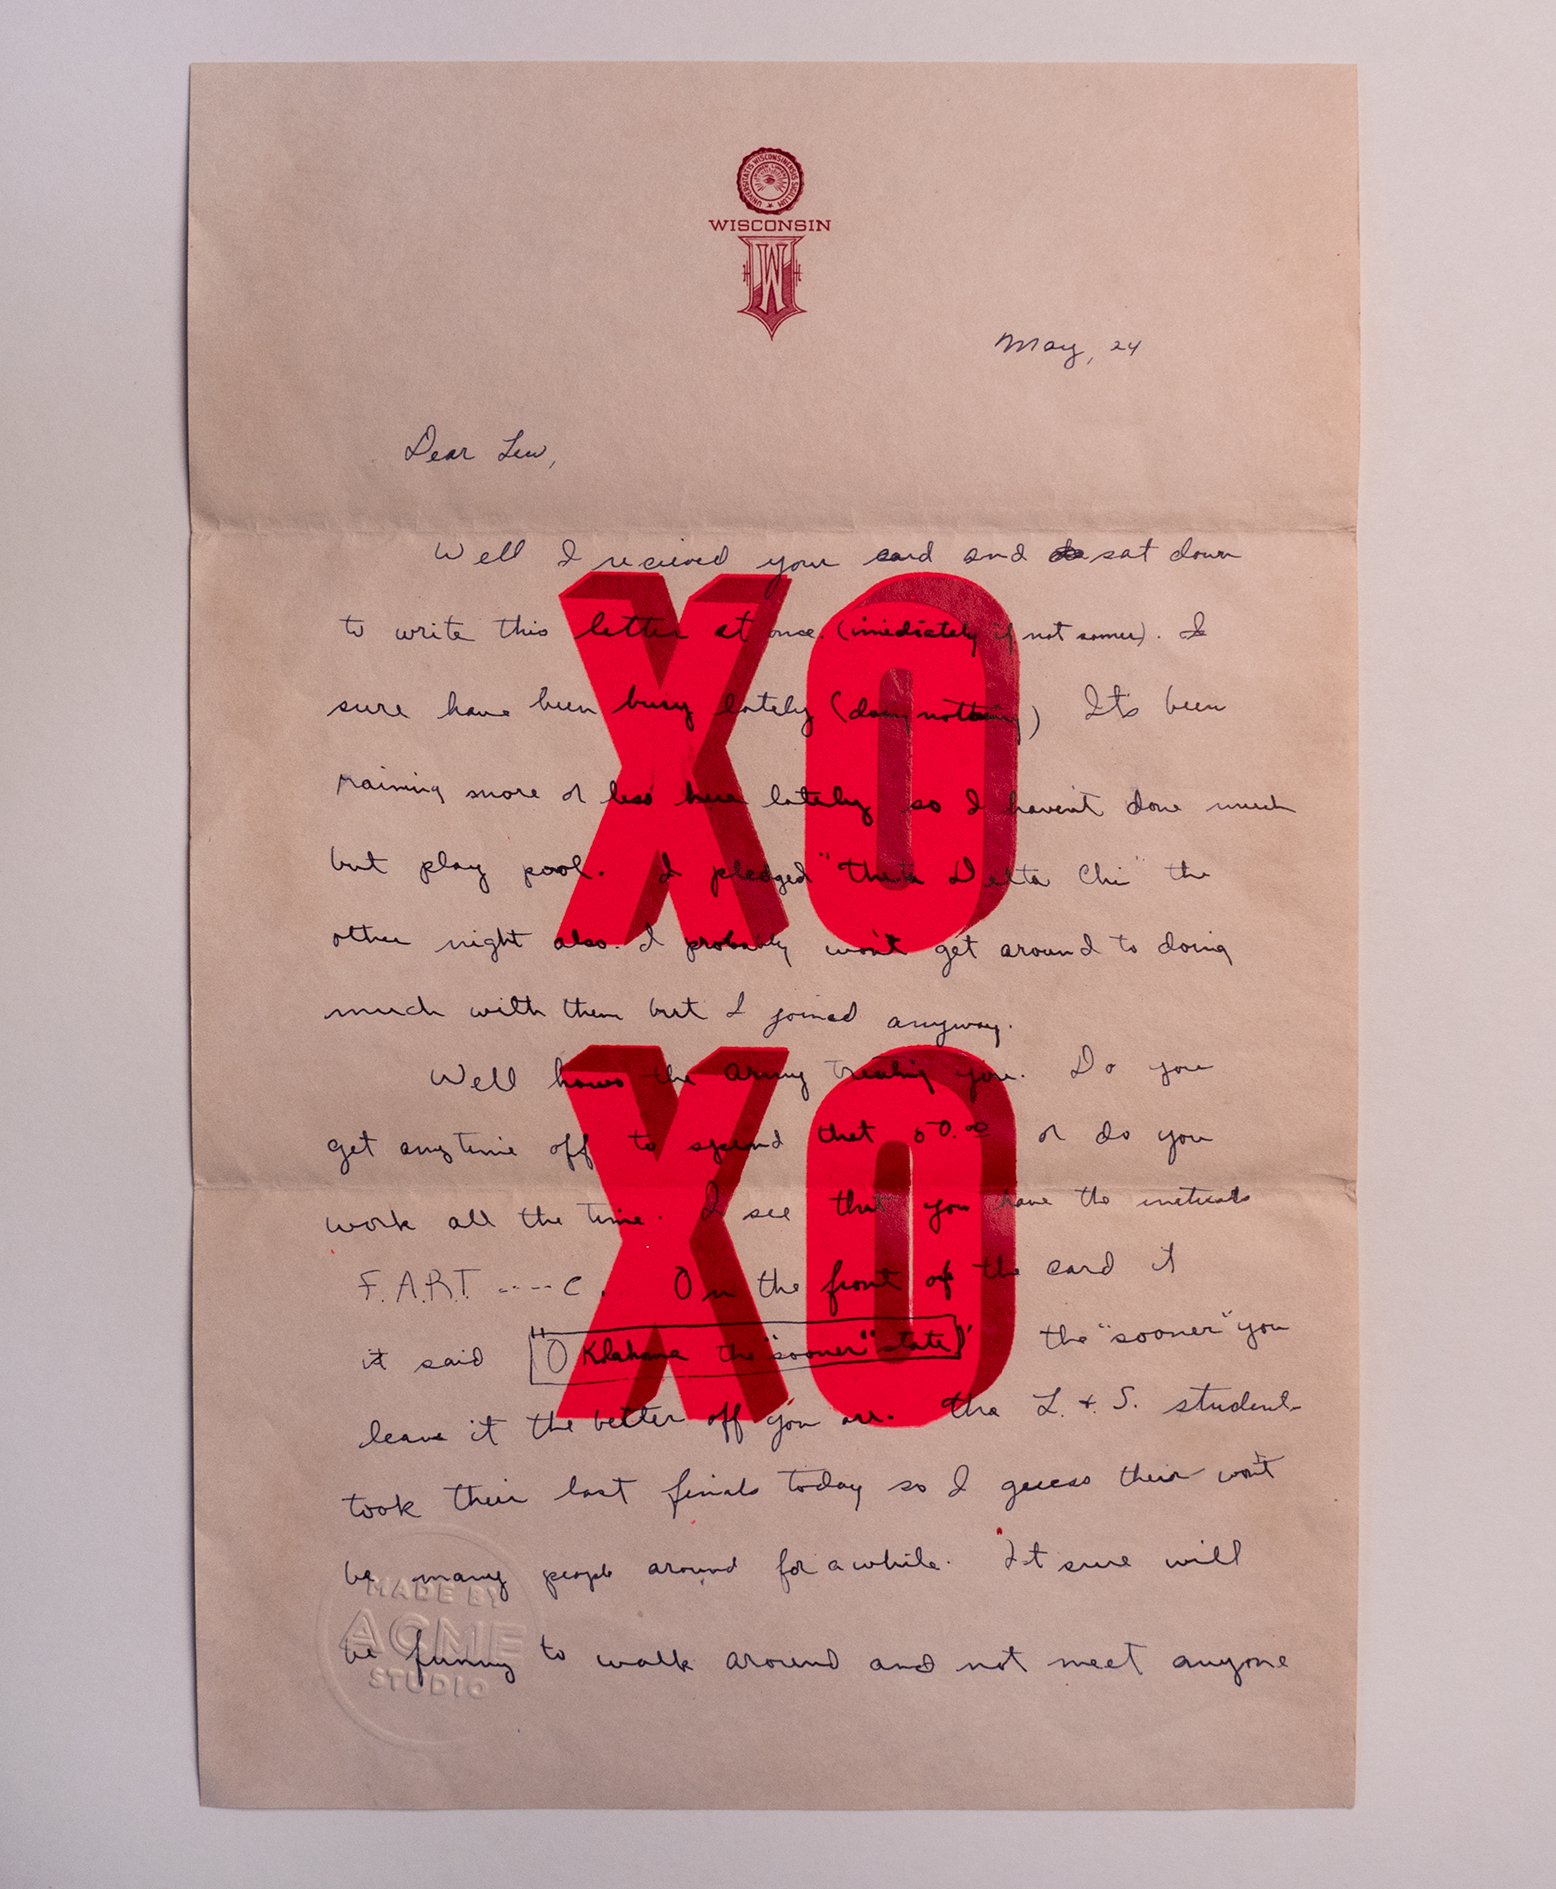 UNIVERSITATIS WISCONSINENSIS SIGILLUM
WISCONSIN
W
May, 24
Dear Lew,
Well I recieved your card and sat down
to write this letter at once. (imediately if not sooner). I
sure have been busy lately (doing nothing) It's been
raining more or less here lately so I haven't done much
but play pool. I pledged "Theta Delta Chi" the
other night also. I probably won't get around to doing
much with them but I joined anyway.
Well hows the army treating you. Do you
get anytime off to spend that 50.00 or do you
work all the time. I see that you have the
F.A.R.T. ----C. On the front of the card it
it said "Oklahoma the "sooner" state" the "sooner" you
leave it the better off you are. The L. & S. student
took their last finals today so I guess their won't
be many people around for a while. It sure will
be funny to walk around and not meet anyone
XO
XO
MADE BY
ACME
STUDIO